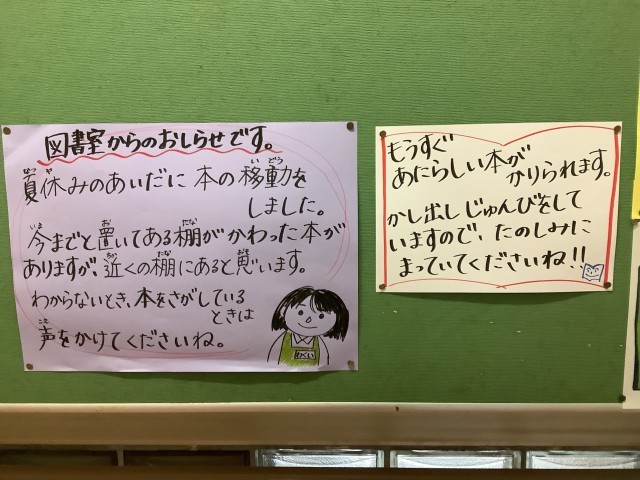 図書室からのおしらせです。
夏休みのあいだに 本の移動を
しました。
今までと置いてある棚がかわった本が
ありますが、近くの棚にあると思います。
わからないとき、本をさがしている
ときは
声をかけてくださいね。
もうすぐ
あたらしい本が
かりられます。
かし出しじゅんびをして
いますので、たのしみに
まっていてくださいね!!